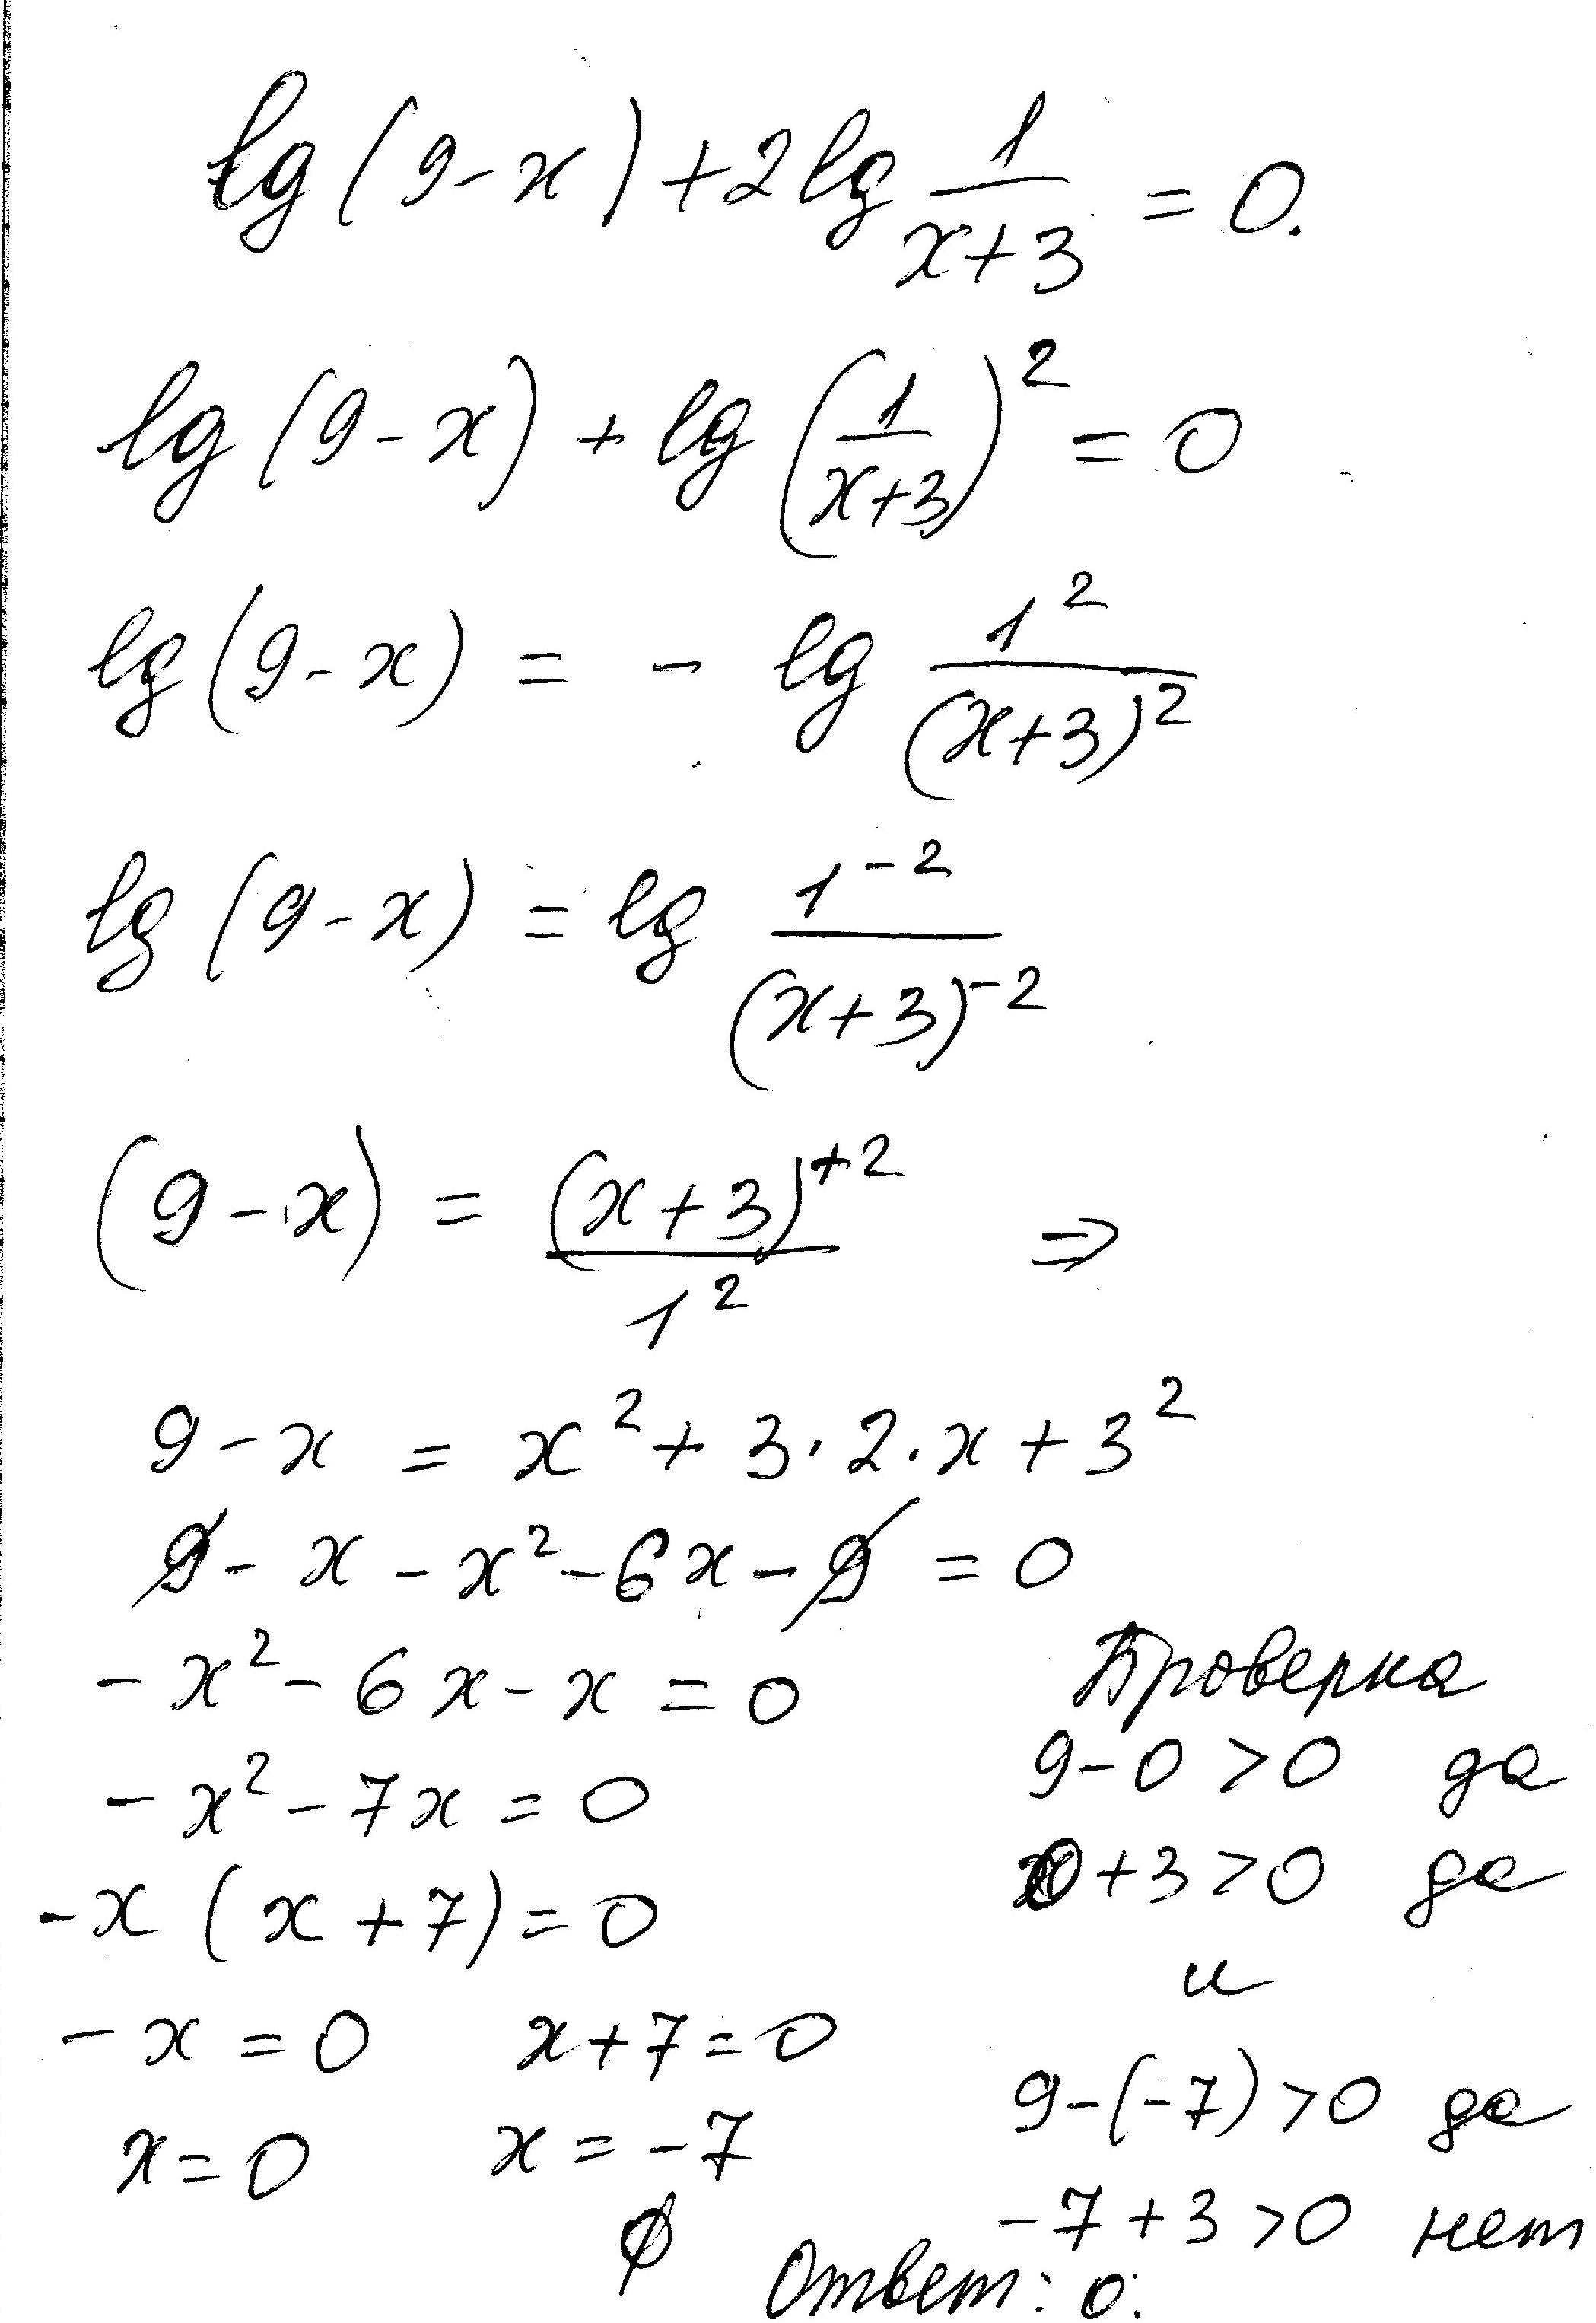 lg(9-x)+2lg 1/(x+3) = 0.
lg(9-x)+lg(1/(x+3))² = 0
lg(9-x) = - lg 1²/(x+3)²
lg(9-x) = lg 1⁻²/(x+3)⁻²
(9-x) = (x+3)⁺²/1² ⇒
9-x = x²+3·2·x+3²
9-x-x²-6x-9 = 0
-x²-6x-x=0
-x²-7x=0
-x(x+7)=0
-x=0 x+7=0
x=0 x=-7
∅
Проверка
9-0>0 да
0+3>0 да
и
9-(-7)>0 да
-7+3>0 нет
Ответ: 0.